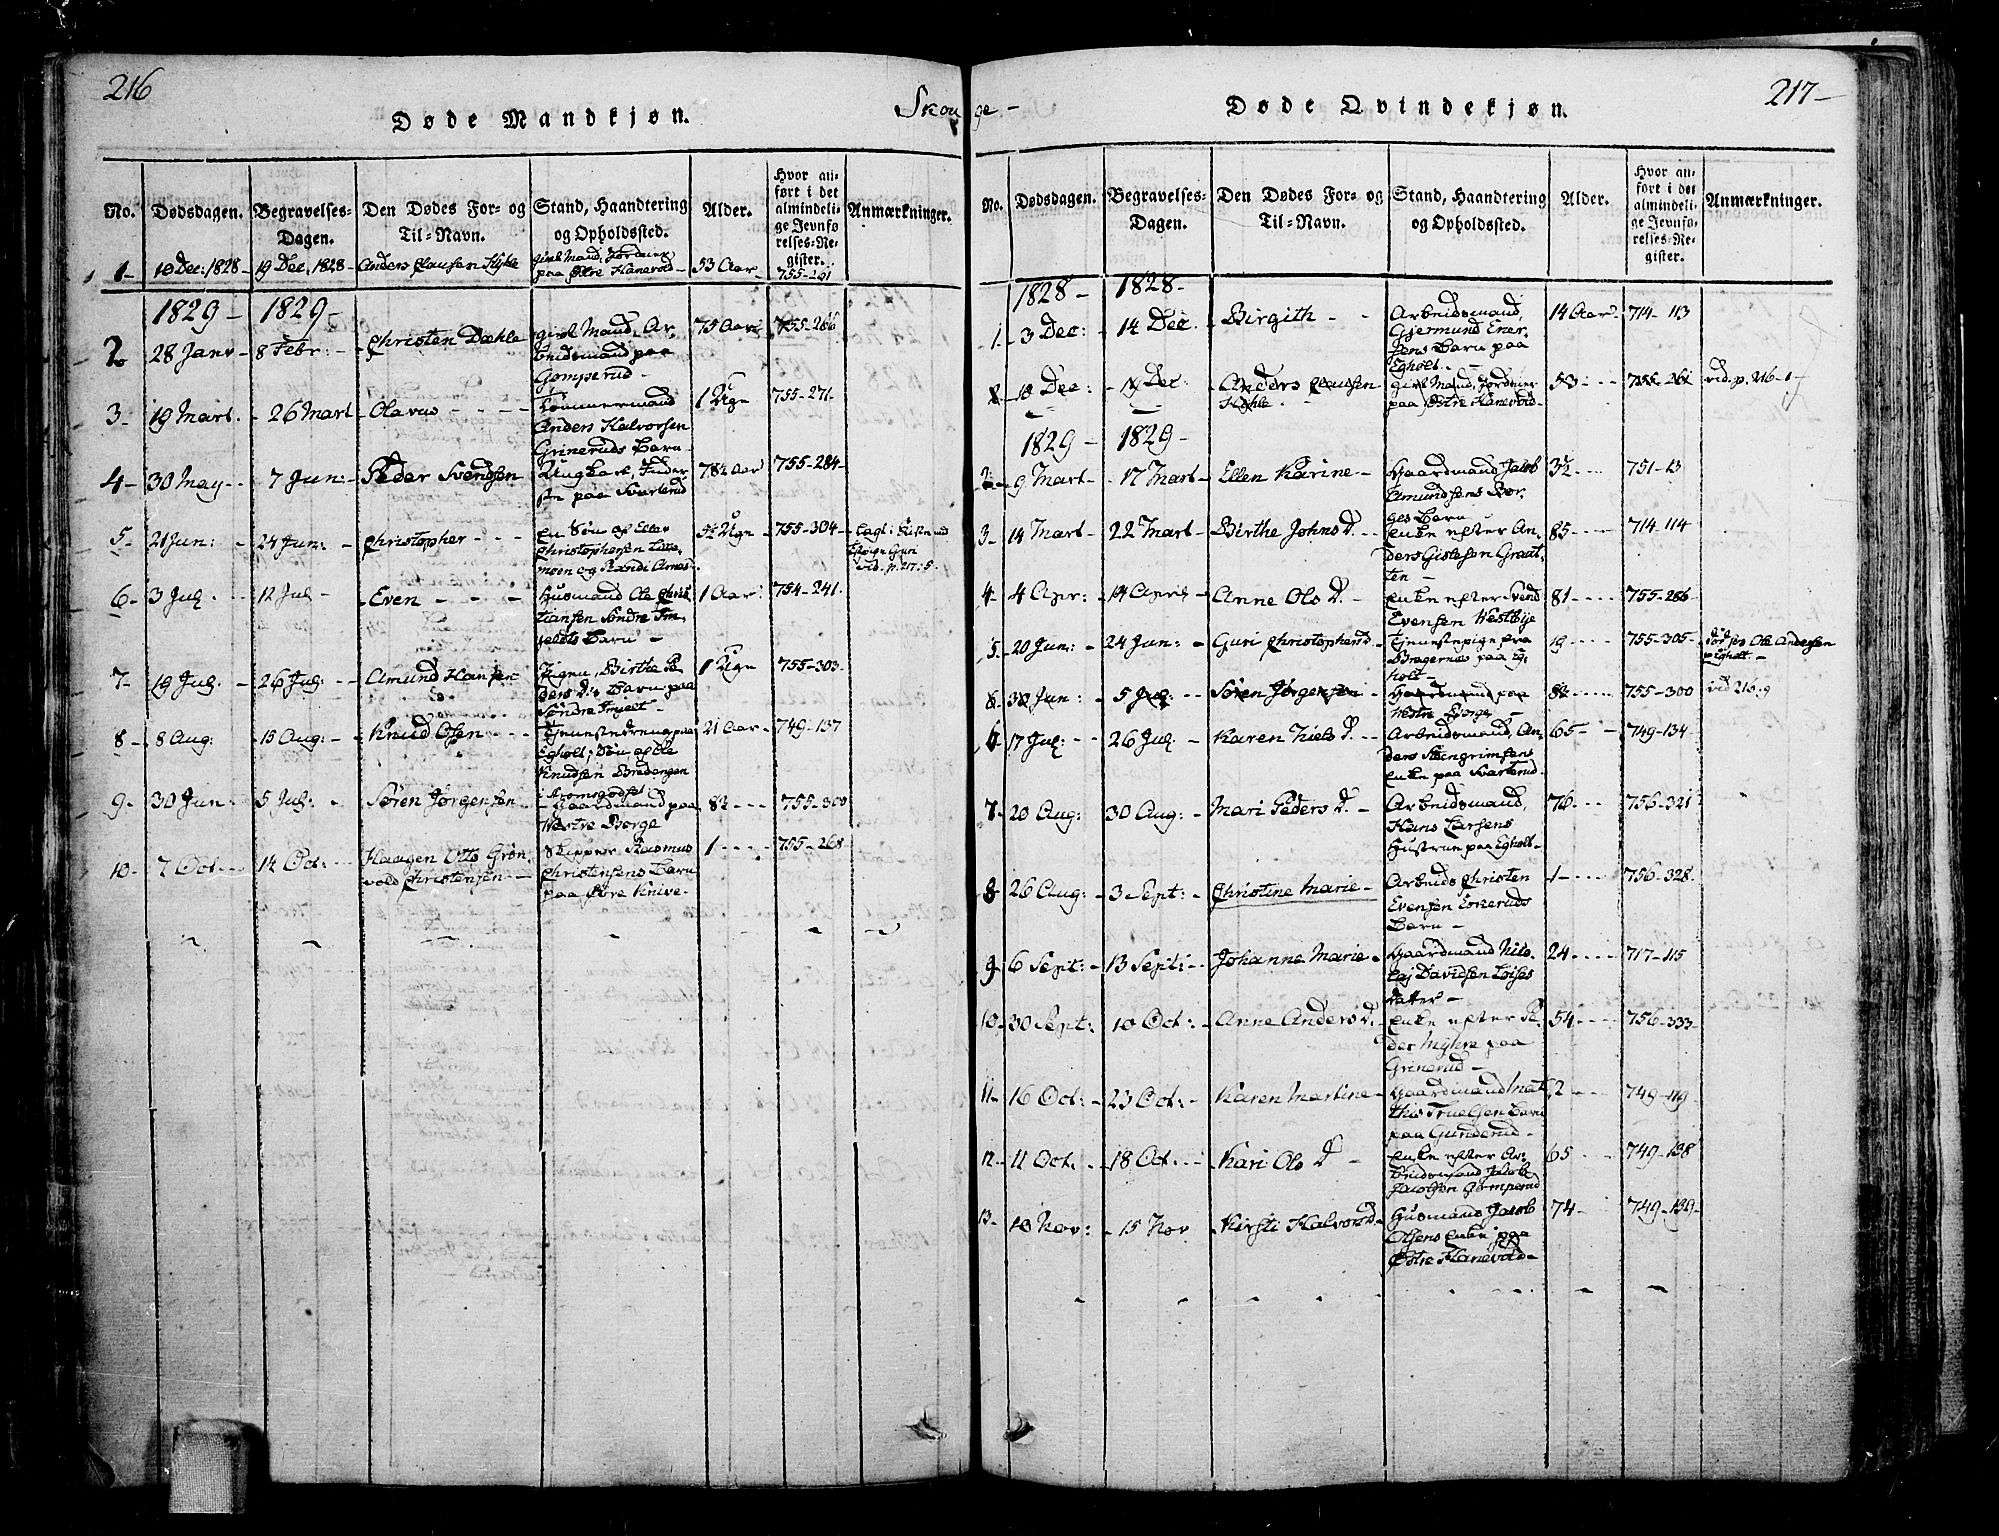 216
Døde Mandkjøn.
Skouge-
Døde Qvindekjøn.
217-
No.
Dødsdagen.
Begravelses-
Dagen.
Den Dødes For- og
Til-Navn.
Stand, Haandtering
og Opholdssted.
Alder.
Hvor an-
ført i det
almindeli-
ge Jevnfø-
relses-Re-
gister.
Anmærkninger.
1- 10 Dec: 1828- 19 Dec. 1828- Anders Clausen Hyhle
givt Mand, Jordeier
paa Østre Hanevold-
53 Aar- 755-291
1829- 1829-
2 28 Janv- 8 Febr:- Christen Dæhle
givt Mand, Ar-
beidsmand paa
Gomperud-
75 Aar 755-286
3- 19 Mart. - 26 Mart Olavus - - - -
Tømmermand
Anders Halvorsen
Grineruds Barn-
1 Ugn 755-271-
4- 30 May- - 7 Jun:- Peder Svendsen
Ungkarl, Inder-
st paa Svarterud
78½ Aar 755-284-
5- 21 Jun: - 24 Jun: - Christopher - - -
en Søn af Ellev
Christophersen
moen og Randi Amos
Ugn - 755-304-
Lagt i Kisten med
Pigen Guri
vid. p. 217: 5.
6- 3 Jul. 12 Jul - - Even - - - -
Husmand Ole Chris
tiansen Søndre Im-
jeldts Barn-
1 Aar 754-241-
7- 19 Jul: - 26 Jul: - - Amund Hansen
Pigen, Birthe Pe-
ders D's Barn paa
Søndre Imjelt-
1 Ugn 755-303-
8- 8 Aug: - 15 Aug: - Knud Olsen - - -
Tjenestedreng paa
Egholt, Søn af Ole
Knudsen Bredengen
i Aromsgodset
21 Aar 749-137
9- 30 Jun: 5 Jul: - Søren Jørgensen -
- Gaardmand paa
Westre Borge
82 - - - 755-300
10- 7 Oct - - 14 Oct: - - Haagen Otto Grøn-
vold Christensen-
Skipper Rasmus
Christensens Barn
paa Øvre Knive-
1 - - - - 755-268
No.
Dødsdagen.
Begravelses-
Dagen.
Den Dødes For- og
Til-Navn.
Stand, Haandtering
og Opholdssted.
Alder.
Hvor an-
ført i det
almindeli-
ge Jevnfø-
relses-Re-
gister.
Anmærkninger.
1828- 1828-
1- 3 Dec: - 14 Dec. - Birgith - -
Arbeidsmand,
Gjermund Ener-
sens Barn paa
Egholt. -
14 Aar 714-113
10 Dec: - 19 Dec: Anders Clausen
Hyhle -
givt Mand, Jordeier
paa Østre Hanevold-
53 - - 755-261 vid. p. 216-1
1829- 1829-
2- 9 Mart- 17 Mart - Ellen Karine-
Gaardmand Jacob
Amundsens Bor-
ges Barn-
32 - - - 751-13
3- 14 Mart - 22 Mart - Birthe Johns D. - -
Enke efter An-
ders Gislesen Graat-
ten-
85 - - - 714-114
4- 4 Apr: - 14 April - Anne Ols D. -
Enke efter Svend
Evensen Westbye
81 - - - 755-286-
5- 20 Jun: - 24 Jun: - Guri Christophersd.
Tjenestepige fra
Bragernæs paa Eg-
holt-
19 - - 755-305- Ole Andersen
Egholt-
30 Jun: - 5 Jul: - - Søren Jørgensen -
Gaardmand paa
Westre Borge-
82 - - - 755-300 vid 216:9
6- 17 Jul: - 26 Jul. - Karen Niels D. - -
Arbeidsmand, An-
ders Steengrimsens
Enke paa Svarterud-
65- - 749-134-
7- 20 Aug: 30 Aug: - Mari Peders D. -
Arbeidsmand,
Hans Larsens
Hustrue paa Egholt-
76 - - - 756-321
8- 26 Aug: - 3 Sept: - Christine Marie-
Arbeids Christen
Evensen Eskeruds
Barn-
1 - - - - 756-328.
9- 6 Sept: - 13 Sept: - Johanne Marie-
Gaardmand Nico-
laj Davidsen Loises
Datter-
24 - - - 717-115
10- 30 Sept: - 10 Oct: - Anne Anders D. -
Enke efter Pe-
der Myhre paa
Grinerud-
54 - - - 756-333-
11- 16 Oct: - 23 Oct: - Karen Martine-
Gaardmand Mat
this Truelsen Barn
paa Gunderud-
2 - - - 749-119-
12- 11 Oct. - 18 Oct. - - Kari Ols D -
Enke efter Ar-
beidsmand Jacob
Jacobsen Gomperud
65 - - 749-138
13- 10 Nov: - 15 Nov - Kirsti Halvorsd-
Husmand Jacob
Olsens Enke paa
Østre Hanevold-
74- 749-139-